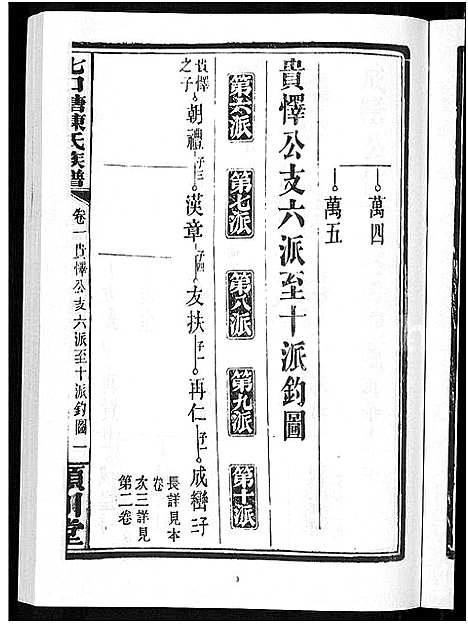 萬四
萬五
貴懌公支六派至十派釣圖
第六派 第七派 第八派 第九派 第十派
貴懌之子 朝禮 子三 漢章 子四 友扶 子一 再仁 子一 成巒 子
長詳見本卷
次三詳見第二卷
七口塘陳氏族譜 卷一 貴懌公支六派至十派釣圖 一 潁川堂